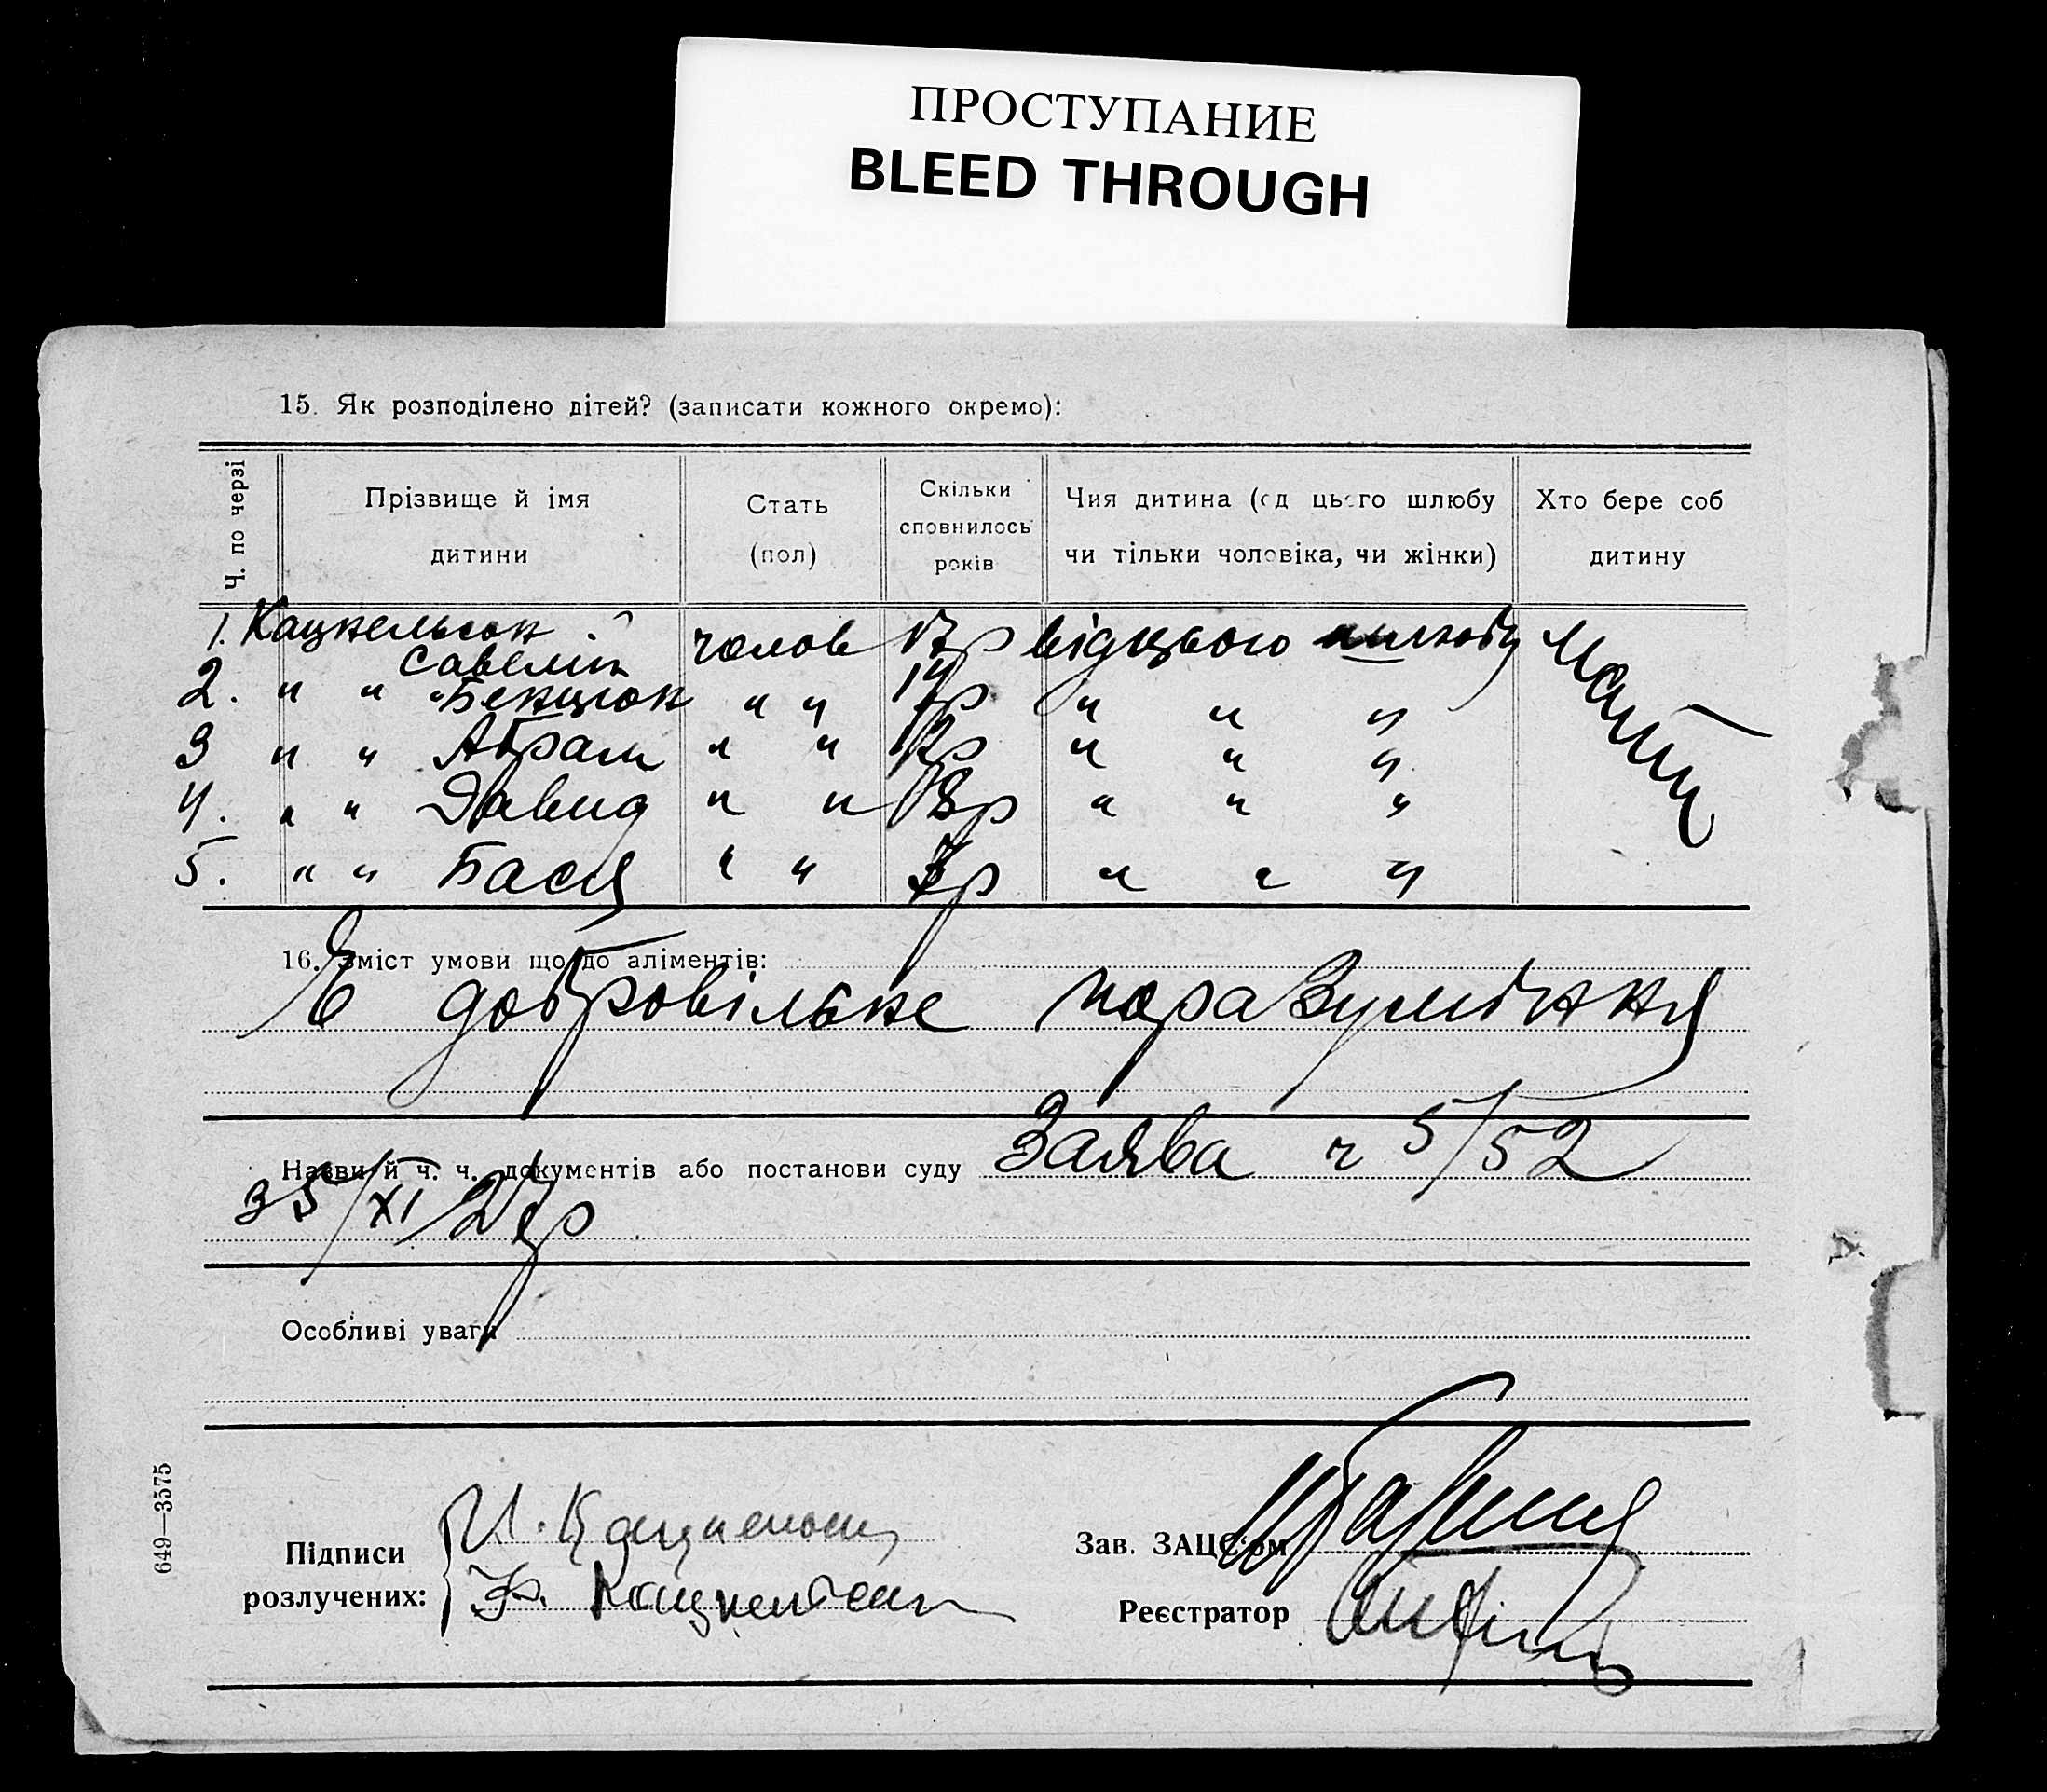 ПРОСТУПАНИЕ
BLEED THROUGH
15. Як розподілено дітей? (записати кожного окремо):
Ч. по черзі
Прізвище й імя
дитини
Стать
(пол)
Скільки
сповнилось
років
Чия дитина (од цього шлюбу
чи тільки чоловіка, чи жінки)
Хто бере соб
дитину
1. Кацнельсон чолов 17р від цього шлюбу Мати
Савелий
2. " " " Бенцион " " " " "
3 " " Абрам " " " " "
4. " " Давид " " " " "
5. " " Бася " " 7р " " "
16. Зміст умови що до аліментів:
Є добровільне поразуміння
Назви й ч. ч. документів або постанови суду Заява ч 5/52
з 5/XI 27р
Особливі уваги
649—3575
Підписи
розлучених:
И. Кацнельсон
Ф. Кацнельсон
Зав. ЗАЦС'ом
Реєстратор